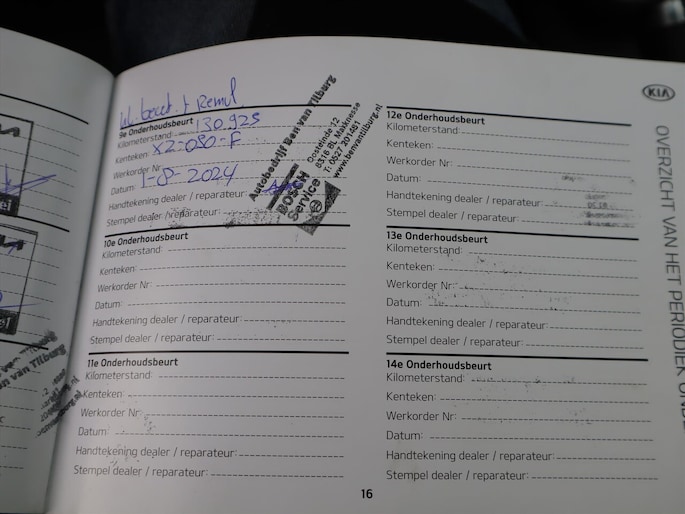 kl. beurt + Remvl
9e Onderhoudsbeurt
Kilometerstand: 130.928
Kenteken: XZ-080-F
Werkorder Nr:
Datum: 1-8-2024
Handtekening dealer / reparateur:
Stempel dealer / reparateur:
Autobedrijf Ben van Tilburg
BOSCH
Service
Oosteinde 12
8316 BL Marknesse
T: 0527 201461
www.benvantilburg.nl
10e Onderhoudsbeurt
Kilometerstand:
Kenteken:
Werkorder Nr:
Datum:
Handtekening dealer / reparateur:
Stempel dealer / reparateur:
11e Onderhoudsbeurt
Kilometerstand:
Kenteken:
Werkorder Nr:
Datum:
Handtekening dealer / reparateur:
Stempel dealer / reparateur:
12e Onderhoudsbeurt
Kilometerstand:
Kenteken:
Werkorder Nr:
Datum:
Handtekening dealer / reparateur:
Stempel dealer / reparateur:
13e Onderhoudsbeurt
Kilometerstand:
Kenteken:
Werkorder Nr:
Datum:
Handtekening dealer / reparateur:
Stempel dealer / reparateur:
14e Onderhoudsbeurt
Kilometerstand:
Kenteken:
Werkorder Nr:
Datum:
Handtekening dealer / reparateur:
Stempel dealer / reparateur:
KIA
OVERZICHT VAN HET PERIODIEK ONDE
16
van Tilburg